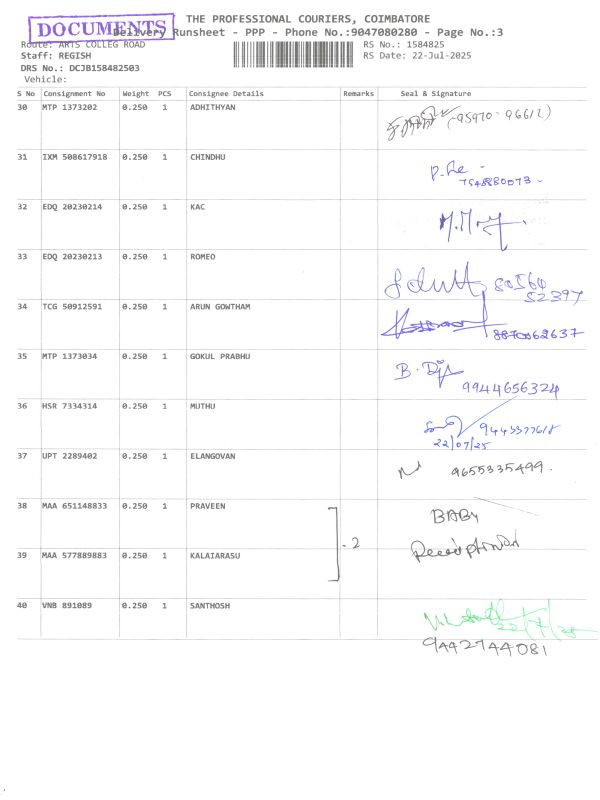 DOCUMENTS
THE PROFESSIONAL COURIERS, COIMBATORE
Delivery Runsheet - PPP - Phone No.:9047080280 - Page No.:3
Route: ARTS COLLEG ROAD
RS No.: 1584825
Staff: REGISH
RS Date: 22-Jul-2025
DRS No.: DCJB158482503
Vehicle:
S No Consignment No Weight PCS Consignee Details Remarks Seal & Signature
30 MTP 1373202 0.250 1 ADHITHYAN
(-95970-96612)
31 IXM 508617918 0.250 1 CHINDHU
32 EDQ 20230214 0.250 1 KAC
33 EDQ 20230213 0.250 1 ROMEO
80560
52397
34 TCG 50912591 0.250 1 ARUN GOWTHAM
8870062637
35 MTP 1373034 0.250 1 GOKUL PRABHU
9944656324
36 HSR 7334314 0.250 1 MUTHU
22/07/25
37 UPT 2289402 0.250 1 ELANGOVAN
9655335499.
38 MAA 651148833 0.250 1 PRAVEEN
BABy
- 2
39 MAA 577889883 0.250 1 KALAIARASU
40 VNB 891089 0.250 1 SANTHOSH
22/7/25
9442744081